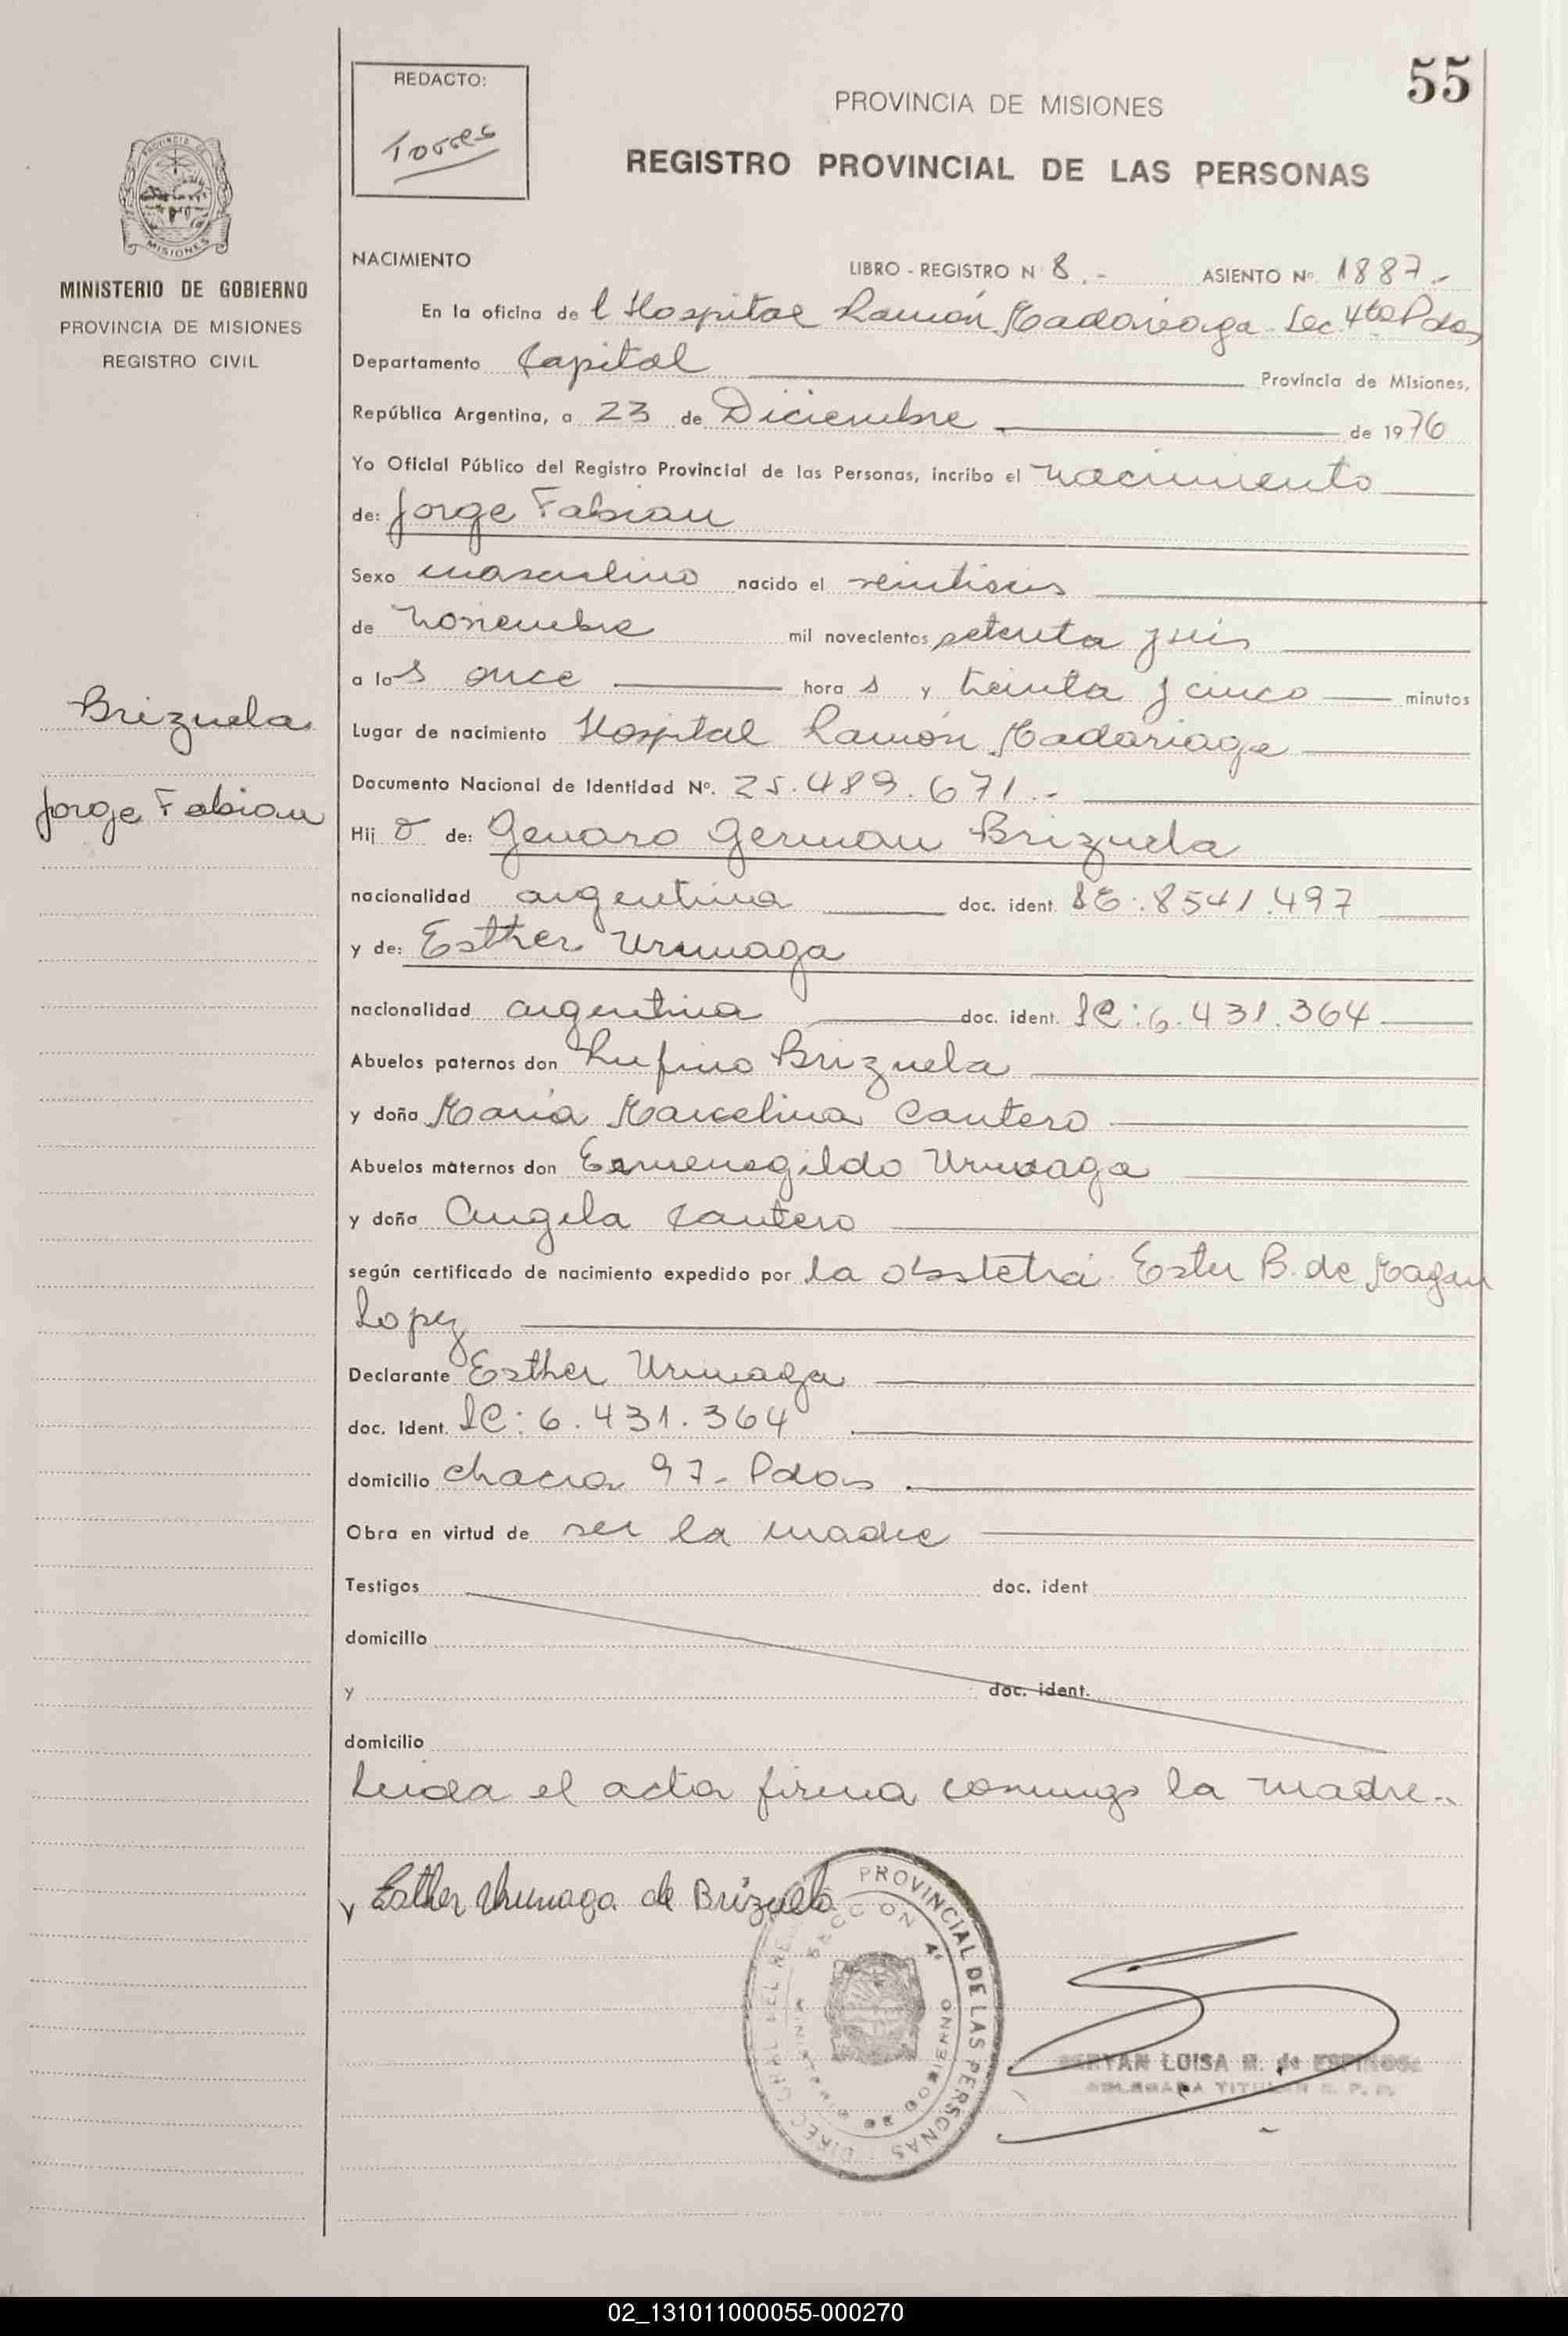 55
REDACTO:
Torres
PROVINCIA DE MISIONES
REGISTRO PROVINCIAL DE LAS PERSONAS
PROVINCIA DE
MISIONES
MINISTERIO DE GOBIERNO
PROVINCIA DE MISIONES
REGISTRO CIVIL
NACIMIENTO
LIBRO - REGISTRO N 8.- ASIENTO Nº. 1887.-
En la oficina de l Hospital Ramón Madariaga Sec 4ta Pdas
Departamento Capital Provincia de Misiones,
República Argentina, a 23 de Diciembre de 1976
Yo Oficial Público del Registro Provincial de las Personas, incribo el nacimiento
de: Jorge Fabian
Sexo masculino nacido el veintiseis
de noviembre mil novecientos setenta y seis
a las once hora s y treinta y cinco minutos
Brizuela
Jorge Fabian
Lugar de nacimiento Hospital Ramón Madariaga
Documento Nacional de Identidad Nº. 25.489.671.-
Hij o de: Genaro German Brizuela
nacionalidad argentina doc. ident. LE:.8541.497
y de: Esther Urunaga
nacionalidad argentina doc. ident. LC:6.431.364
Abuelos paternos don Rufino Brizuela
y doña Maria Marcelina Cantero
Abuelos maternos don Ermenegildo Urunaga
y doña Angela Cantero
según certificado de nacimiento expedido por la obstetra. Ester B. de Magan
Lopez
Declarante Esther Urunaga
doc. Ident. LC: 6.431.364
domicilio chacra 97- Pdas
Obra en virtud de ser la madre
Testigos doc. ident
domicilio
y doc. ident.
domicilio
Leida el acta firma conmigo la madre..
Esther Urunaga de Brizuela
PROVINCIAL DE LAS PERSONAS
DIREC GRAL DEL RE
SECCION 4ª
MINISTERIO DE GOBIERNO
LUISA M. de
02_131011000055-000270